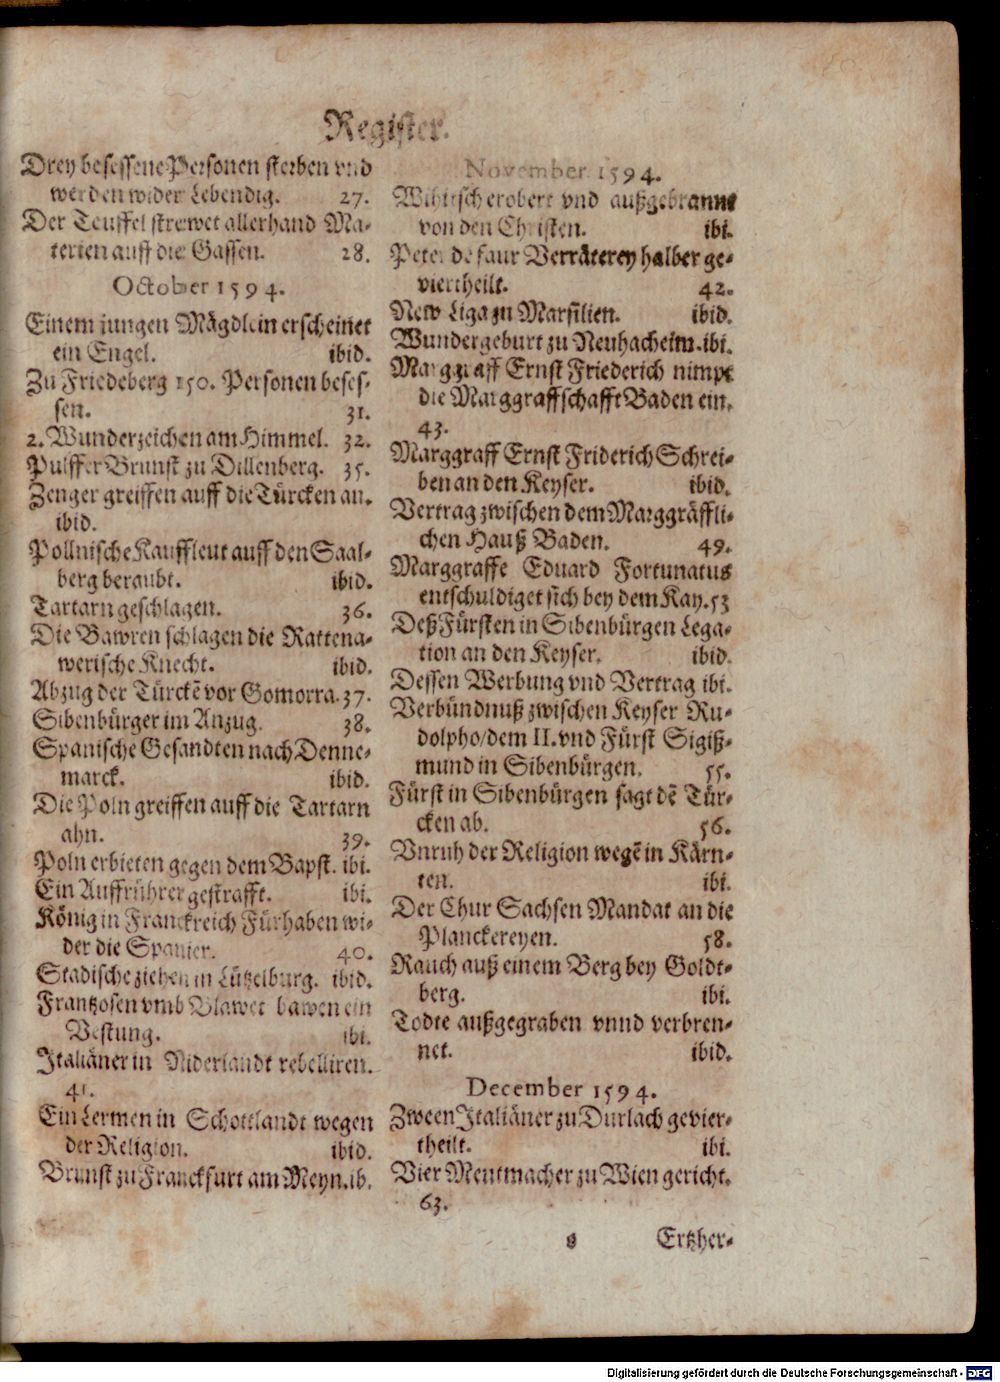 Register.
Drey besessene Personen sterben vnd
werden wider Lebendig. 27.
Der Teuffel strewet allerhand Ma-
terien auff die Gassen. 28.
October 1594.
Einem jungen Mägdlein erscheinet
ein Engel. ibid.
Zu Friedeberg 150. Personen beses-
sen. 31.
2. Wunderzeichen am Himmel. 32.
Pulffer Brunst zu Dillenberg. 35.
Zenger greiffen auff die Türcken an.
ibid.
Pollnische Kauffleut auff den Saal-
berg beraubt. ibid.
Tartarn geschlagen. 36.
Die Bawren schlagen die Rattena-
werische Knecht. ibid.
Abzug der Türckẽ vor Gomorra. 37.
Sibenbürger im Anzug. 38.
Spanische Gesandten nach Denne-
marck. ibid.
Die Poln greiffen auff die Tartarn
ahn. 39.
Poln erbieten gegen dem Bapst. ibi.
Ein Auffrührer gestrafft. ibi.
König in Franckreich Fürhaben wi-
der die Spanier. 40.
Stadische ziehen in Lützelburg. ibid.
Frantzosen vmb Blawet bawen ein
Vestung. ibi.
Italiäner in Niderlandt rebelliren.
41.
Ein Lermen in Schottlandt wegen
der Religion. ibid.
Brunst zu Franckfurt am Meyn. ib.
November 1594.
Wihitsch erobert vnd außgebrannt
von den Christen. ibi.
Peter de faur Verräterey halber ge-
viertheilt. 42.
New Liga zu Marsilien. ibid.
Wundergeburt zu Neuhacheim. ibi.
Marggraff Ernst Friederich nimpt
die Marggraffschafft Baden ein.
43.
Marggraff Ernst Friderich Schrei-
ben an den Keyser. ibid.
Vertrag zwischen dem Marggräffli-
chen Hauß Baden. 49.
Marggraffe Eduard Fortunatus
entschuldiget sich bey dem Kay. 53
Deß Fürsten in Sibenbürgen Lega-
tion an den Keyser. ibid.
Dessen Werbung vnd Vertrag ibi.
Verbündnuß zwischen Keyser Ru-
dolpho/dem II. vnd Fürst Sigiß-
mund in Sibenbürgen. 55.
Fürst in Sibenbürgen sagt dẽ Tür-
cken ab. 56.
Vnruh der Religion wegẽ in Kärn-
ten. ibi.
Der Chur Sachsen Mandat an die
Planckereyen. 58.
Rauch auß einem Berg bey Goldt-
berg. ibi.
Todte außgegraben vnnd verbren-
net. ibid.
December 1594.
Zween Italiäner zu Durlach gevier-
theilt. ibi.
Vier Mentmacher zu Wien gericht.
63.
Ertzher-
Digitalisierung gefördert durch die Deutsche Forschungsgemeinschaft - DFG